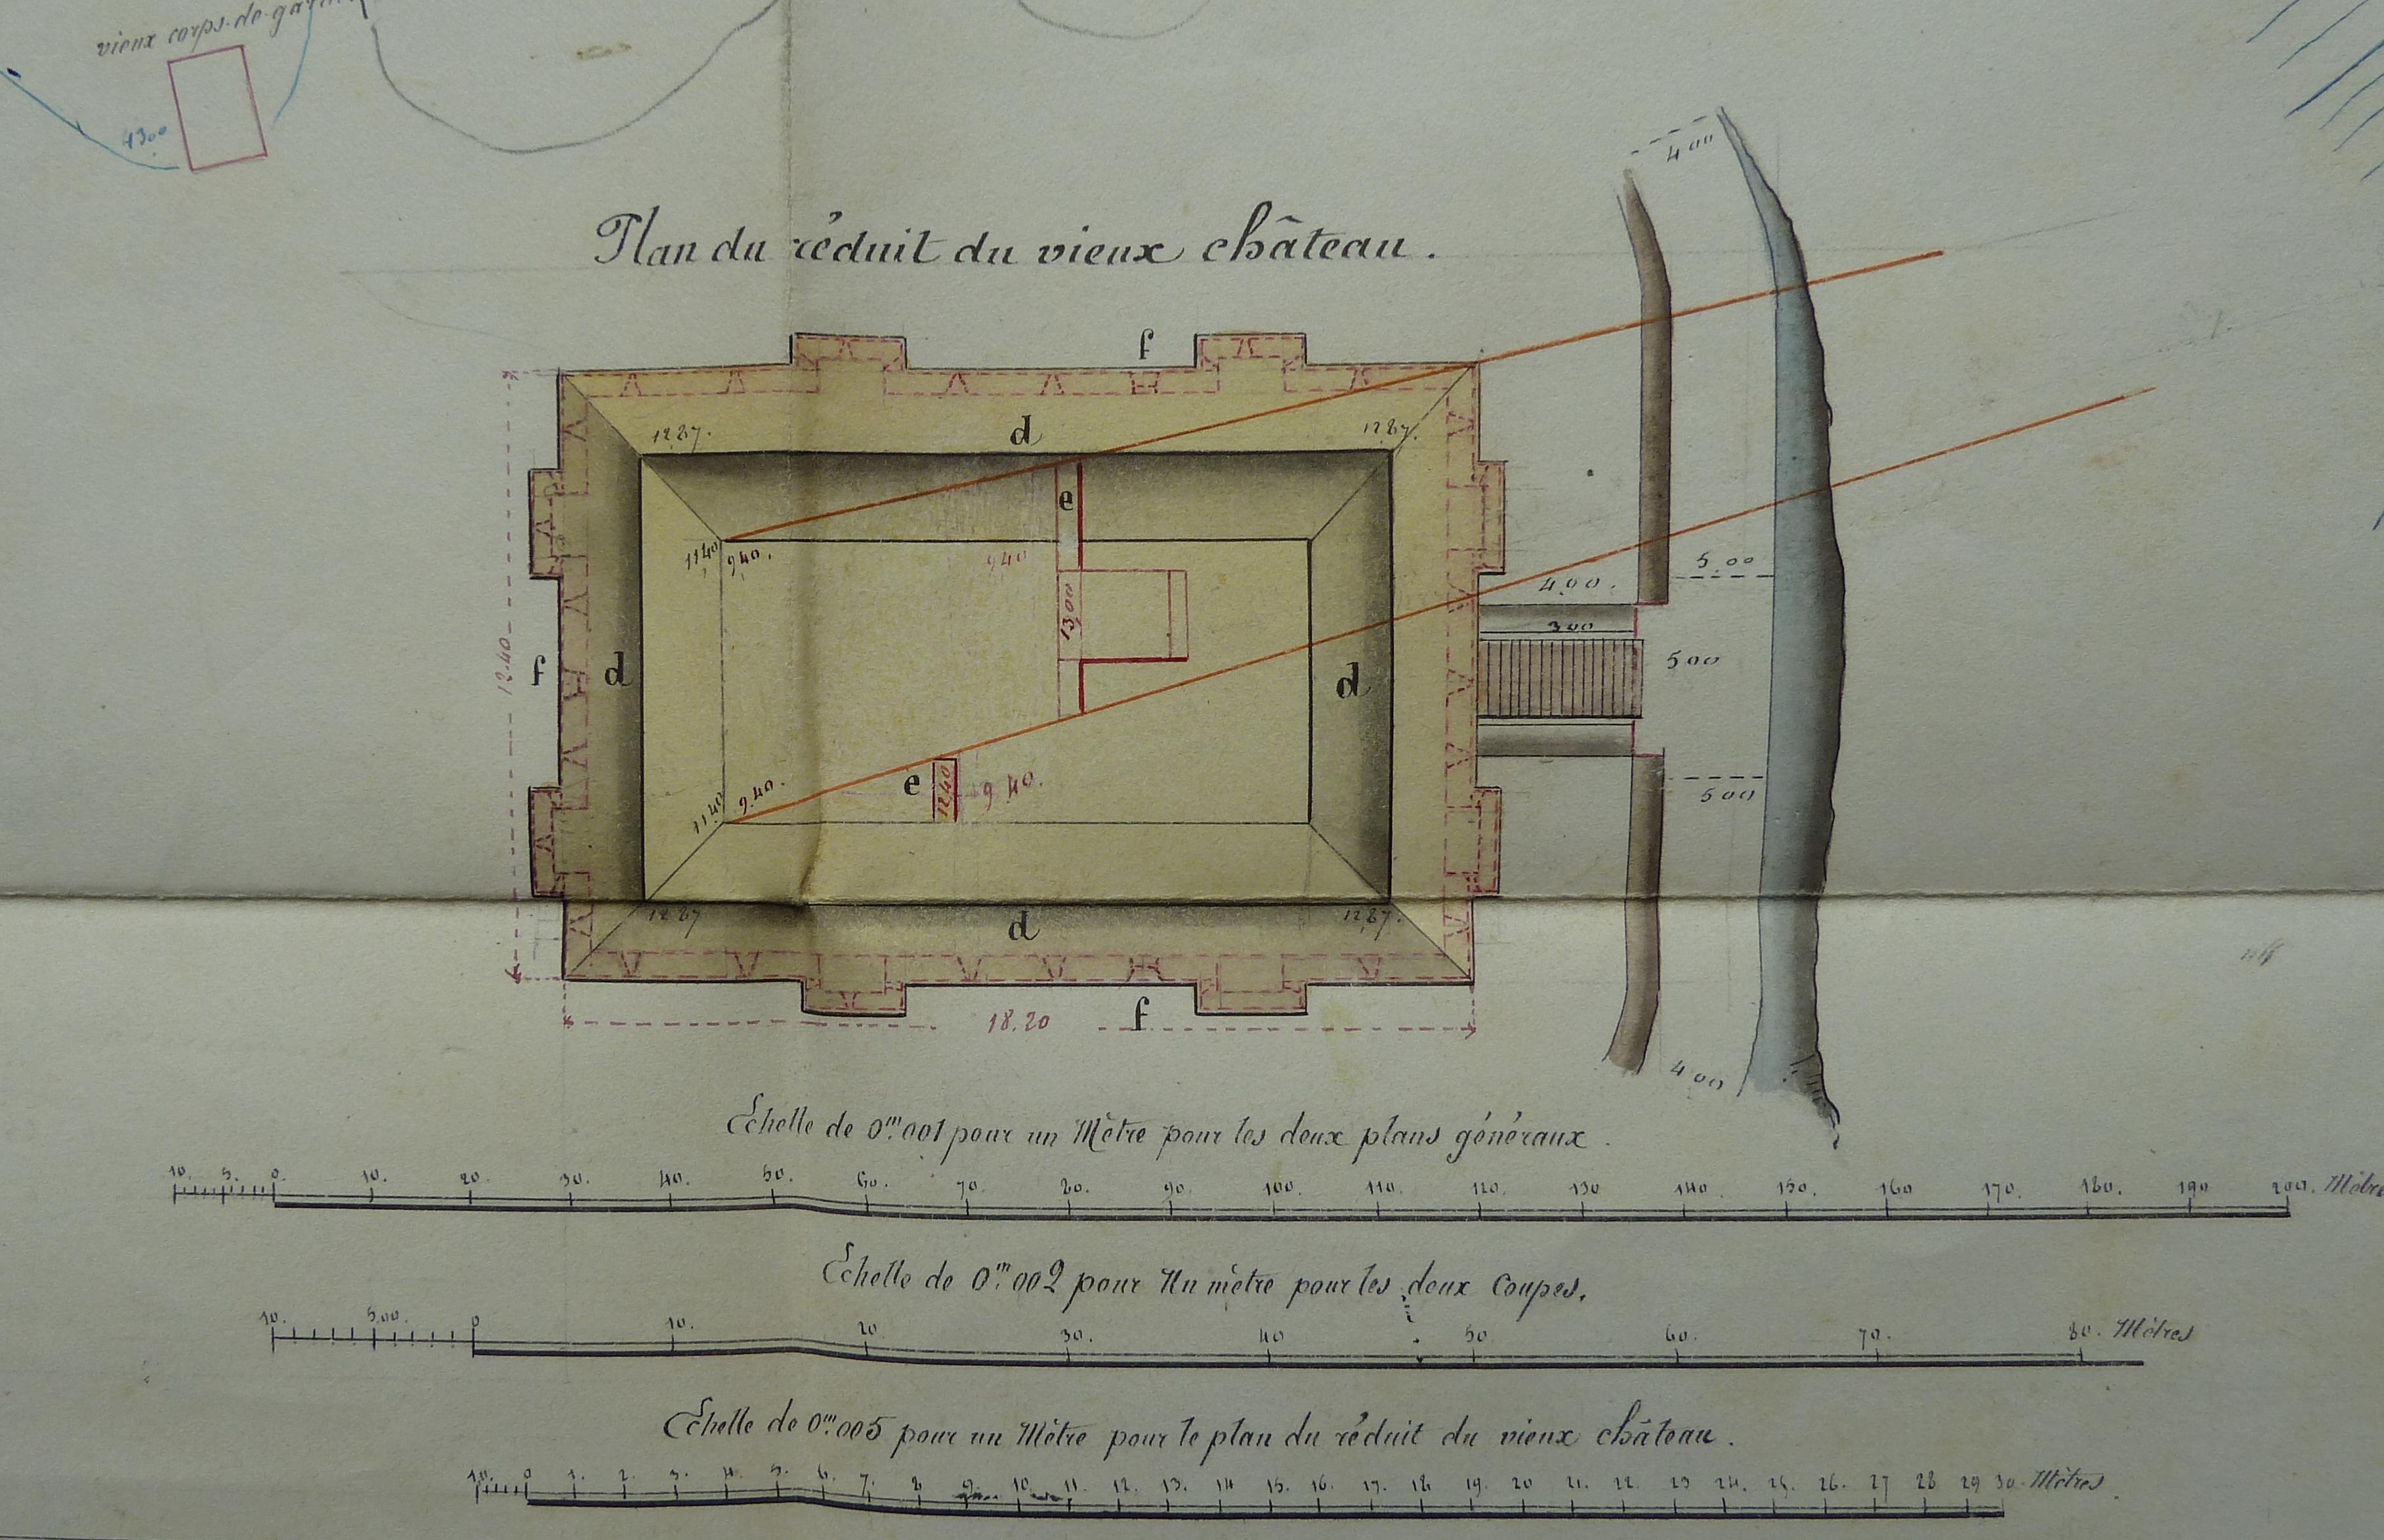 vieux corps-de-garde
4300
Plan du réduit du vieux château.
4 00
f
d
12.87.
12.87.
e
11.40
9.40.
9.40
13,00
5.00
4.00.
3 00
5 00
12.40
f
d
d
e
12.40
9.40.
9.40.
11.40
5 00
12.87
d
12.87.
18.20
f
4 00
Echelle de 0.m001 pour un Mètre pour les deux plans généraux.
10. 5. 0. 10. 20. 30. 40. 50. 60. 70. 80. 90. 100. 110. 120. 130 140. 150. 160 170. 180. 190 200. Mètres
Echelle de 0.m002 pour Un mètre pour les deux Coupes.
10. 5,00. 0 10. 20. 30. 40 50 60. 70. 80. Mètres
Echelle de 0.m005 pour un Mètre pour le plan du réduit du vieux château.
1,0. 0 1. 2. 3. 4. 5. 6. 7. 8 9. 10. 11. 12. 13. 14 15. 16. 17. 18 19. 20 21. 22. 23 24. 25. 26. 27 28 29 30. Mètres.